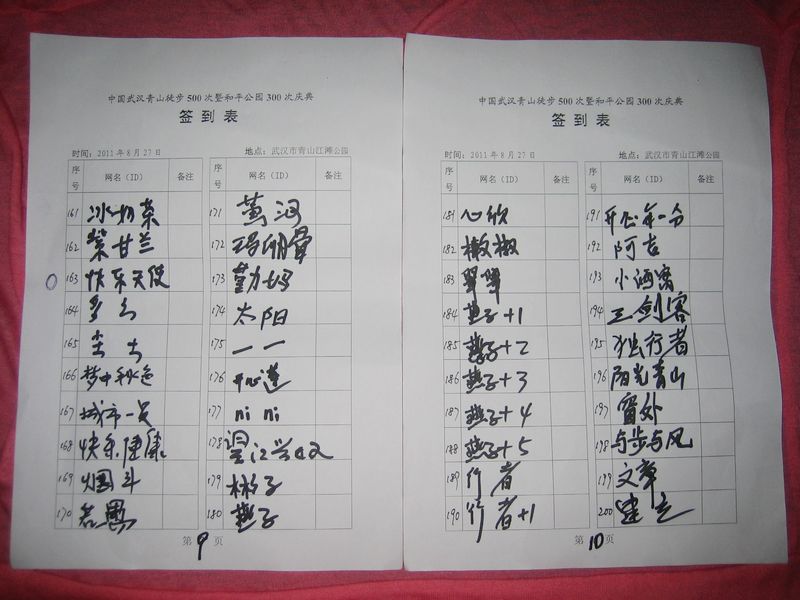 中国武汉青山徒步500次暨和平公园300次庆典
签到表
时间：2011年8月27日 地点：武汉市青山江滩公园
序号 网名（ID） 备注 序号 网名（ID） 备注
161 冰奶茶 171 黄河
162 紫甘兰 172
163 快乐天使 173 勤妈
164 174 太阳
165 175 一一
166 梦中秋色 176 开心莲
167 城市一员 177 ni ni
168 快乐健康 178
169 烟斗 179 彬子
170 若愚 180 燕子
第9页
中国武汉青山徒步500次暨和平公园300次庆典
签到表
时间：2011年8月27日 地点：武汉市青山江滩公园
序号 网名（ID） 备注 序号 网名（ID） 备注
181 心欣 191 开心年一分
182 辣椒 192 阿吉
183 翠翠 193 小酒窝
184 燕子+1 194 三剑客
185 燕子+2 195 独行者
186 燕子+3 196 阳光青山
187 燕子+4 197 窗外
188 燕子+5 198 与步与风
189 行者 199 文章
190 行者+1 200 建立
第10页